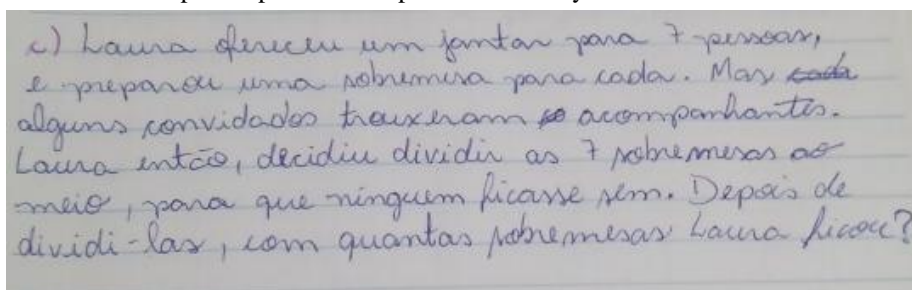 c) Laura ofereceu um jantar para 7 pessoas,
e preparou uma sobremesa para cada. Mas cada
alguns convidados trouxeram acompanhantes.
Laura então, decidiu dividir as 7 sobremesas ao
meio, para que ninguem ficasse sem. Depois de
dividi-las, com quantas sobremesas Laura ficou?